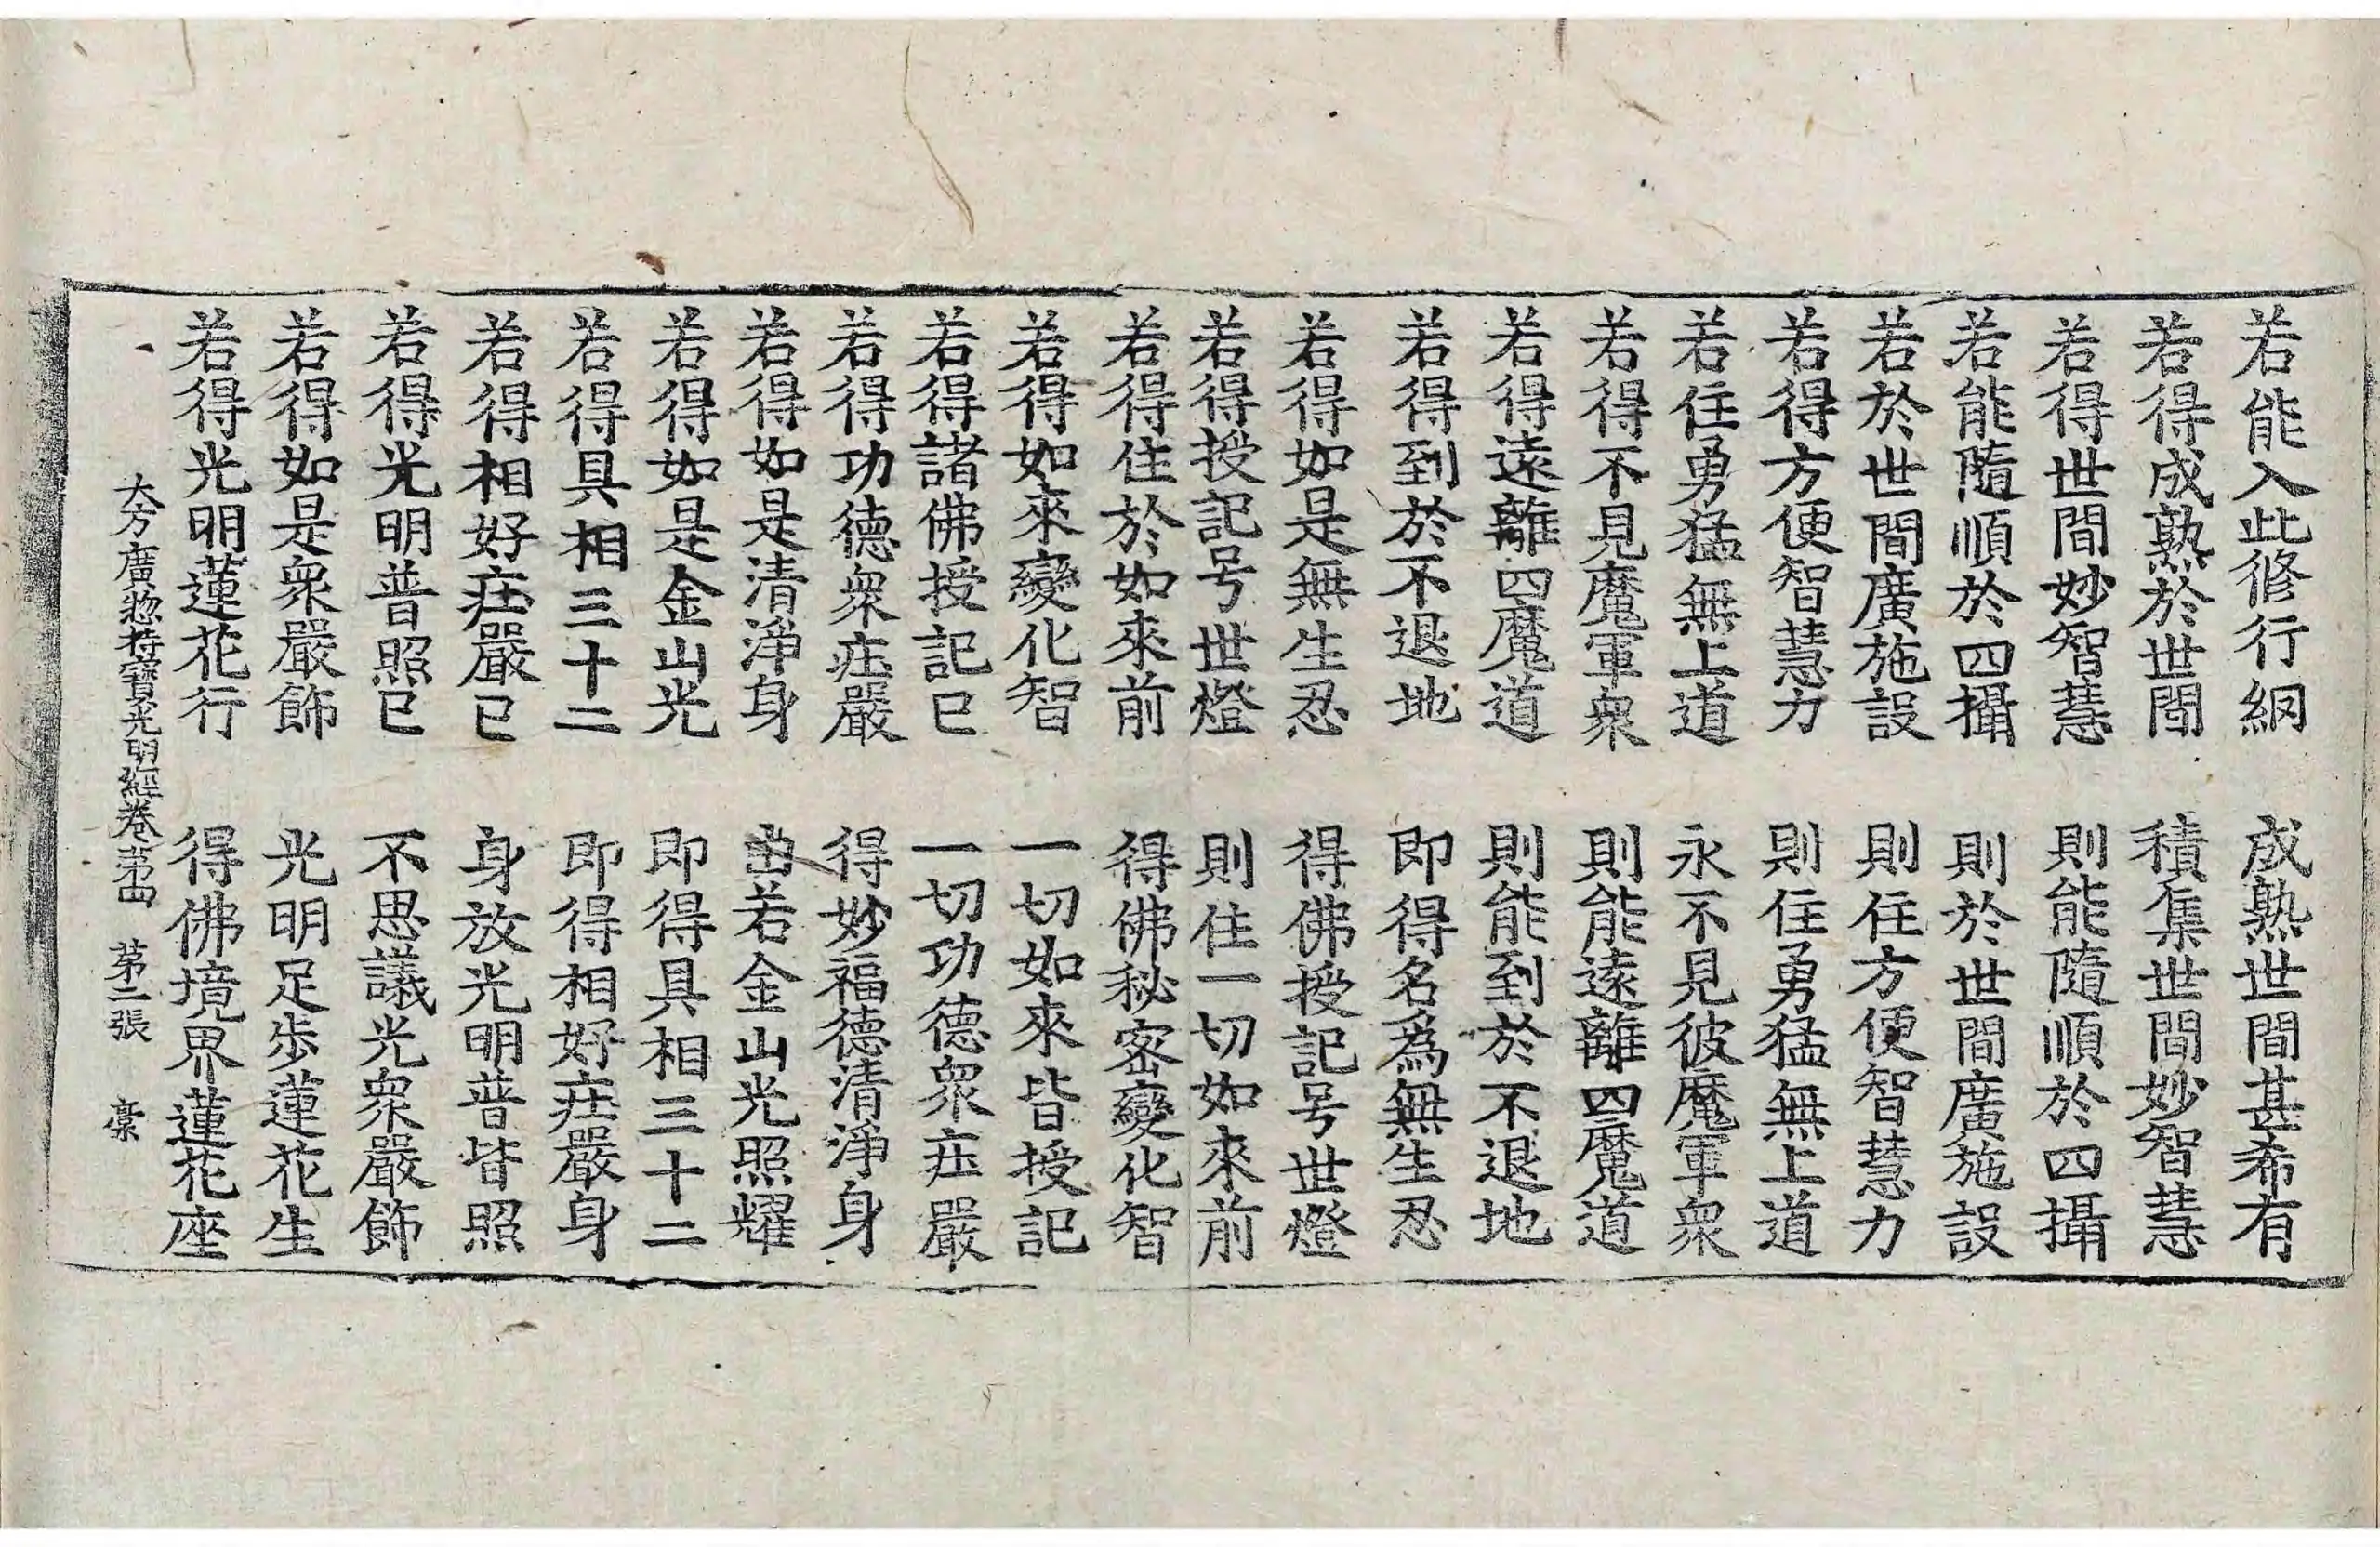 若能入此修行網　成熟世間甚希有
若得成熟於世間　積集世間妙智慧
若得世間妙智慧　則能隨順於四攝
若能隨順於四攝　則於世間廣施設
若於世間廣施設　則住方便智慧力
若得方便智慧力　則住勇猛無上道
若住勇猛無上道　永不見彼魔軍衆
若得不見魔軍衆　則能遠離四魔道
若得遠離四魔道　則能到於不退地
若得到於不退地　即得名爲無生忍
若得如是無生忍　得佛授記号世燈
若得授記号世燈　則住一切如來前
若得住於如來前　得佛秘密變化智
若得如來變化智　一切如來皆授記
若得諸佛授記已　一切功德衆庄嚴
若得功德衆庄嚴　得妙福德清淨身
若得如是清淨身　由若金山光照耀
若得如是金山光　即得具相三十二
若得具相三十二　即得相好庄嚴身
若得相好庄嚴已　身放光明普皆照
若得光明普照已　不思議光衆嚴飾
若得如是衆嚴飾　光明足步蓮花生
若得光明蓮花行　得佛境界蓮花座
大方廣惣持寶光明經卷第四　第二張　槀